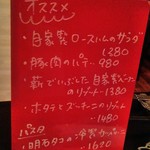 オススメ
・自家製ロースハムのサラダ
1380
・豚肉のパテ 980
・薪でいぶした自家製ベーコンの
リゾット 1380
・ホタテとズッキーニのリゾット
1480
パスタ
・明石タコの冷製
1620